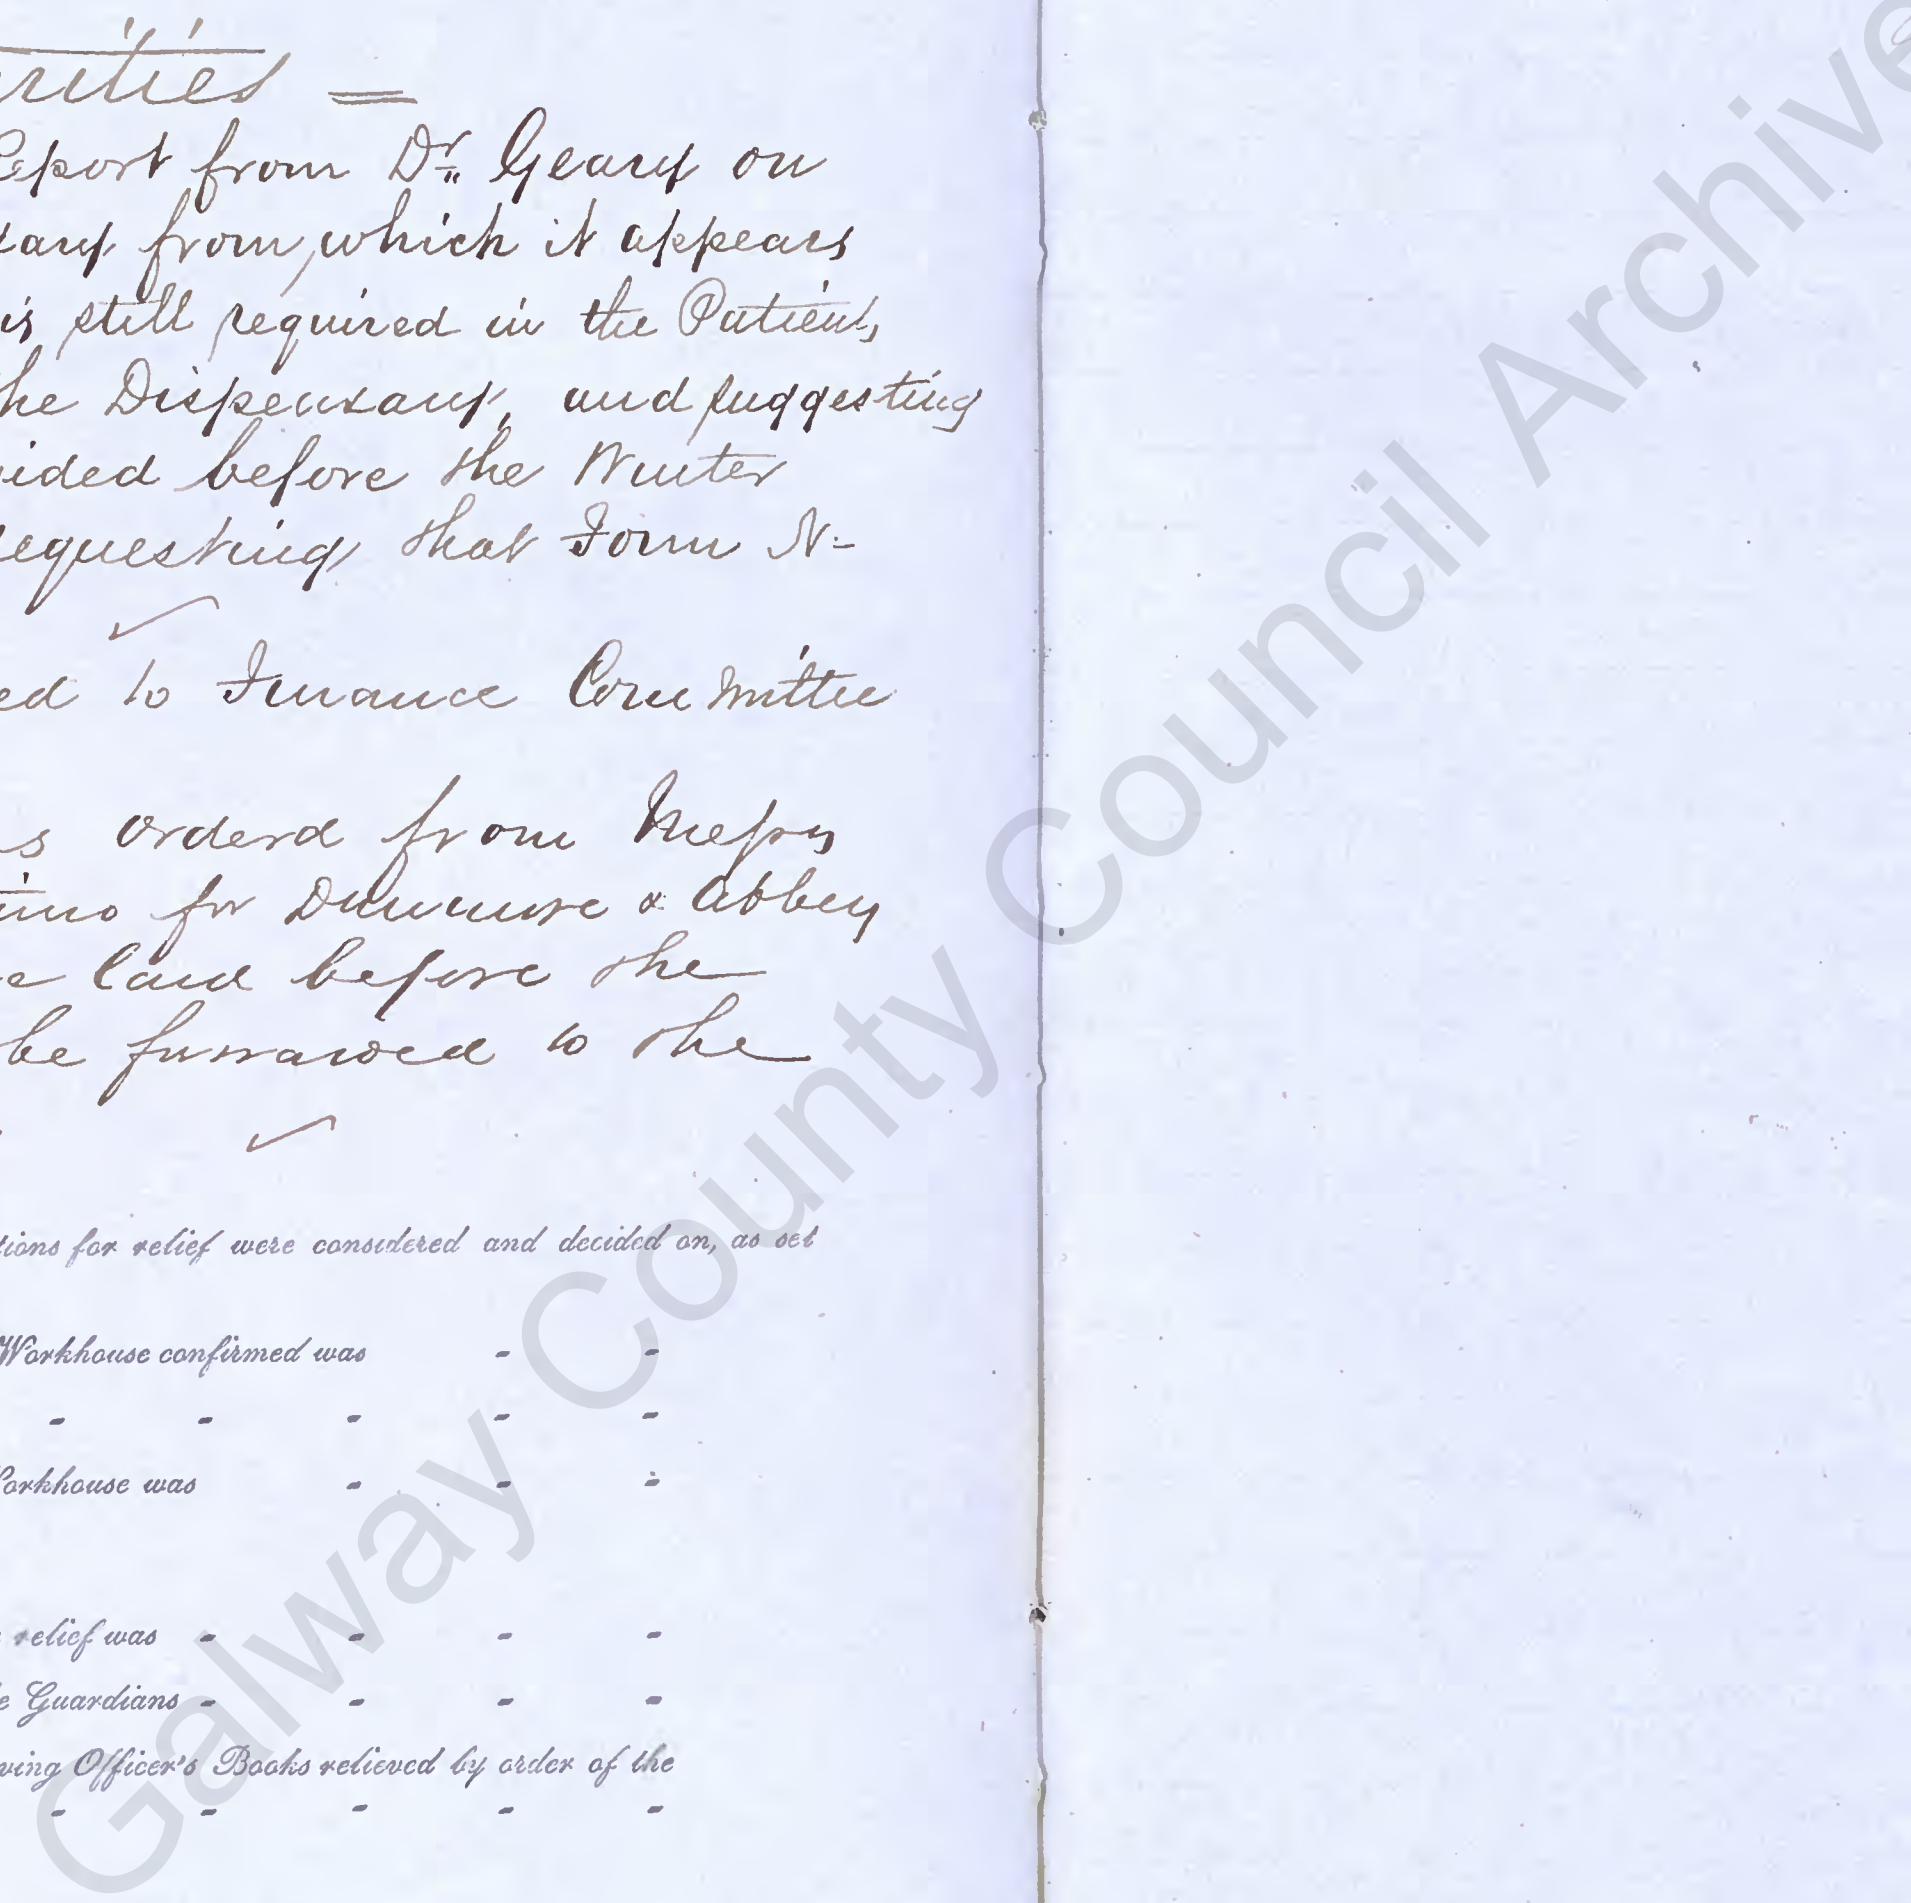 rities =
eport from Dr. Geary on
sary from which it appears
is still required in the Patients
he Dispensary, and suggesting
vided before the Winter
equesting that Form N-
ed to Finance Committee
s orderd from Messrs
for Dunmore & Abbey
e laid before the
be forwarded to the
tions for relief were considered and decided on, as set
Workhouse confirmed was - -
- - - - -
Workhouse was - - -
relief was - - - -
e Guardians - - - -
ving Officer's Books relieved by order of the
- - - - -
Galway County Council Archive